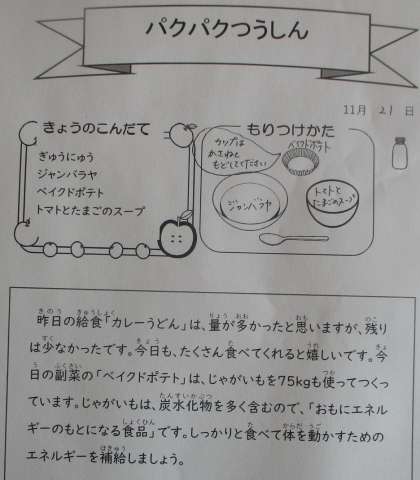 パクパクつうしん
11月 21 日
きょうのこんだて
ぎゅうにゅう
ジャンバラヤ
ベイクドポテト
トマトとたまごのスープ
もりつけかた
カップは
かさねて
もどしてください
ベイクドポテト
ジャンバラヤ
トマトと
たまごのスープ
昨日の給食「カレーうどん」は、量が多かったと思いますが、残り
は少なかったです。今日も、たくさん食べてくれると嬉しいです。今
日の副菜の「ベイクドポテト」は、じゃがいもを75kgも使ってつくっ
ています。じゃがいもは、炭水化物を多く含むので、「おもにエネル
ギーのもとになる食品」です。しっかりと食べて体を動かすための
エネルギーを補給しましょう。